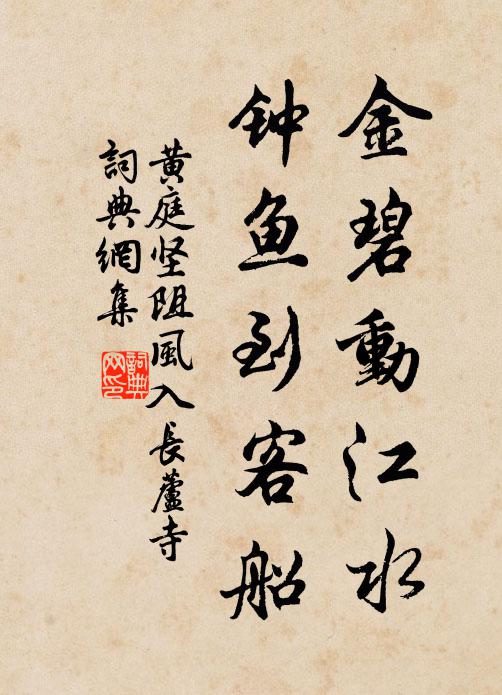 金碧動江水
钟鱼到客船
黄庭坚阻風入長蘆寺
詞典網集
詞典網印